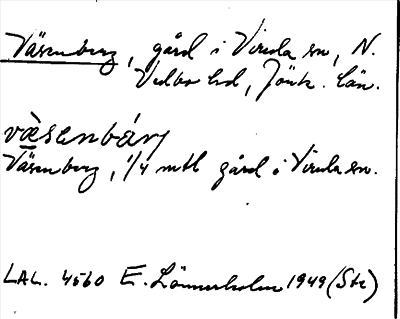 Väsenberg, gård i Virula sn, N.
Vedbo hd, Jönk. län.
väsenbárj
Väsenberg, 1/4 mtl gård i Virula sn.
LAL. 4560 E. Lönnerholm 1949 (Str)